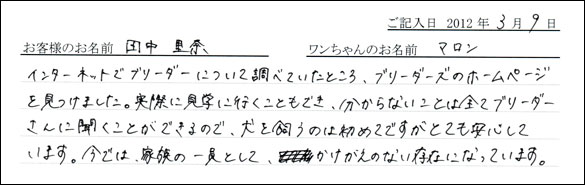 ご記入日 2012 年 3 月 9 日
お客様のお名前 田中 里奈 ワンちゃんのお名前 マロン
インターネットでブリーダーについて調べていたところ、ブリーダーズのホームページ
を見つけました。実際に見学に行くこともでき、分からないことは全てブリーダー
さんに聞くことができるので、犬を飼うのは初めてですがとても安心して
います。今では、家族の一員として、かけがえのない存在になっています。